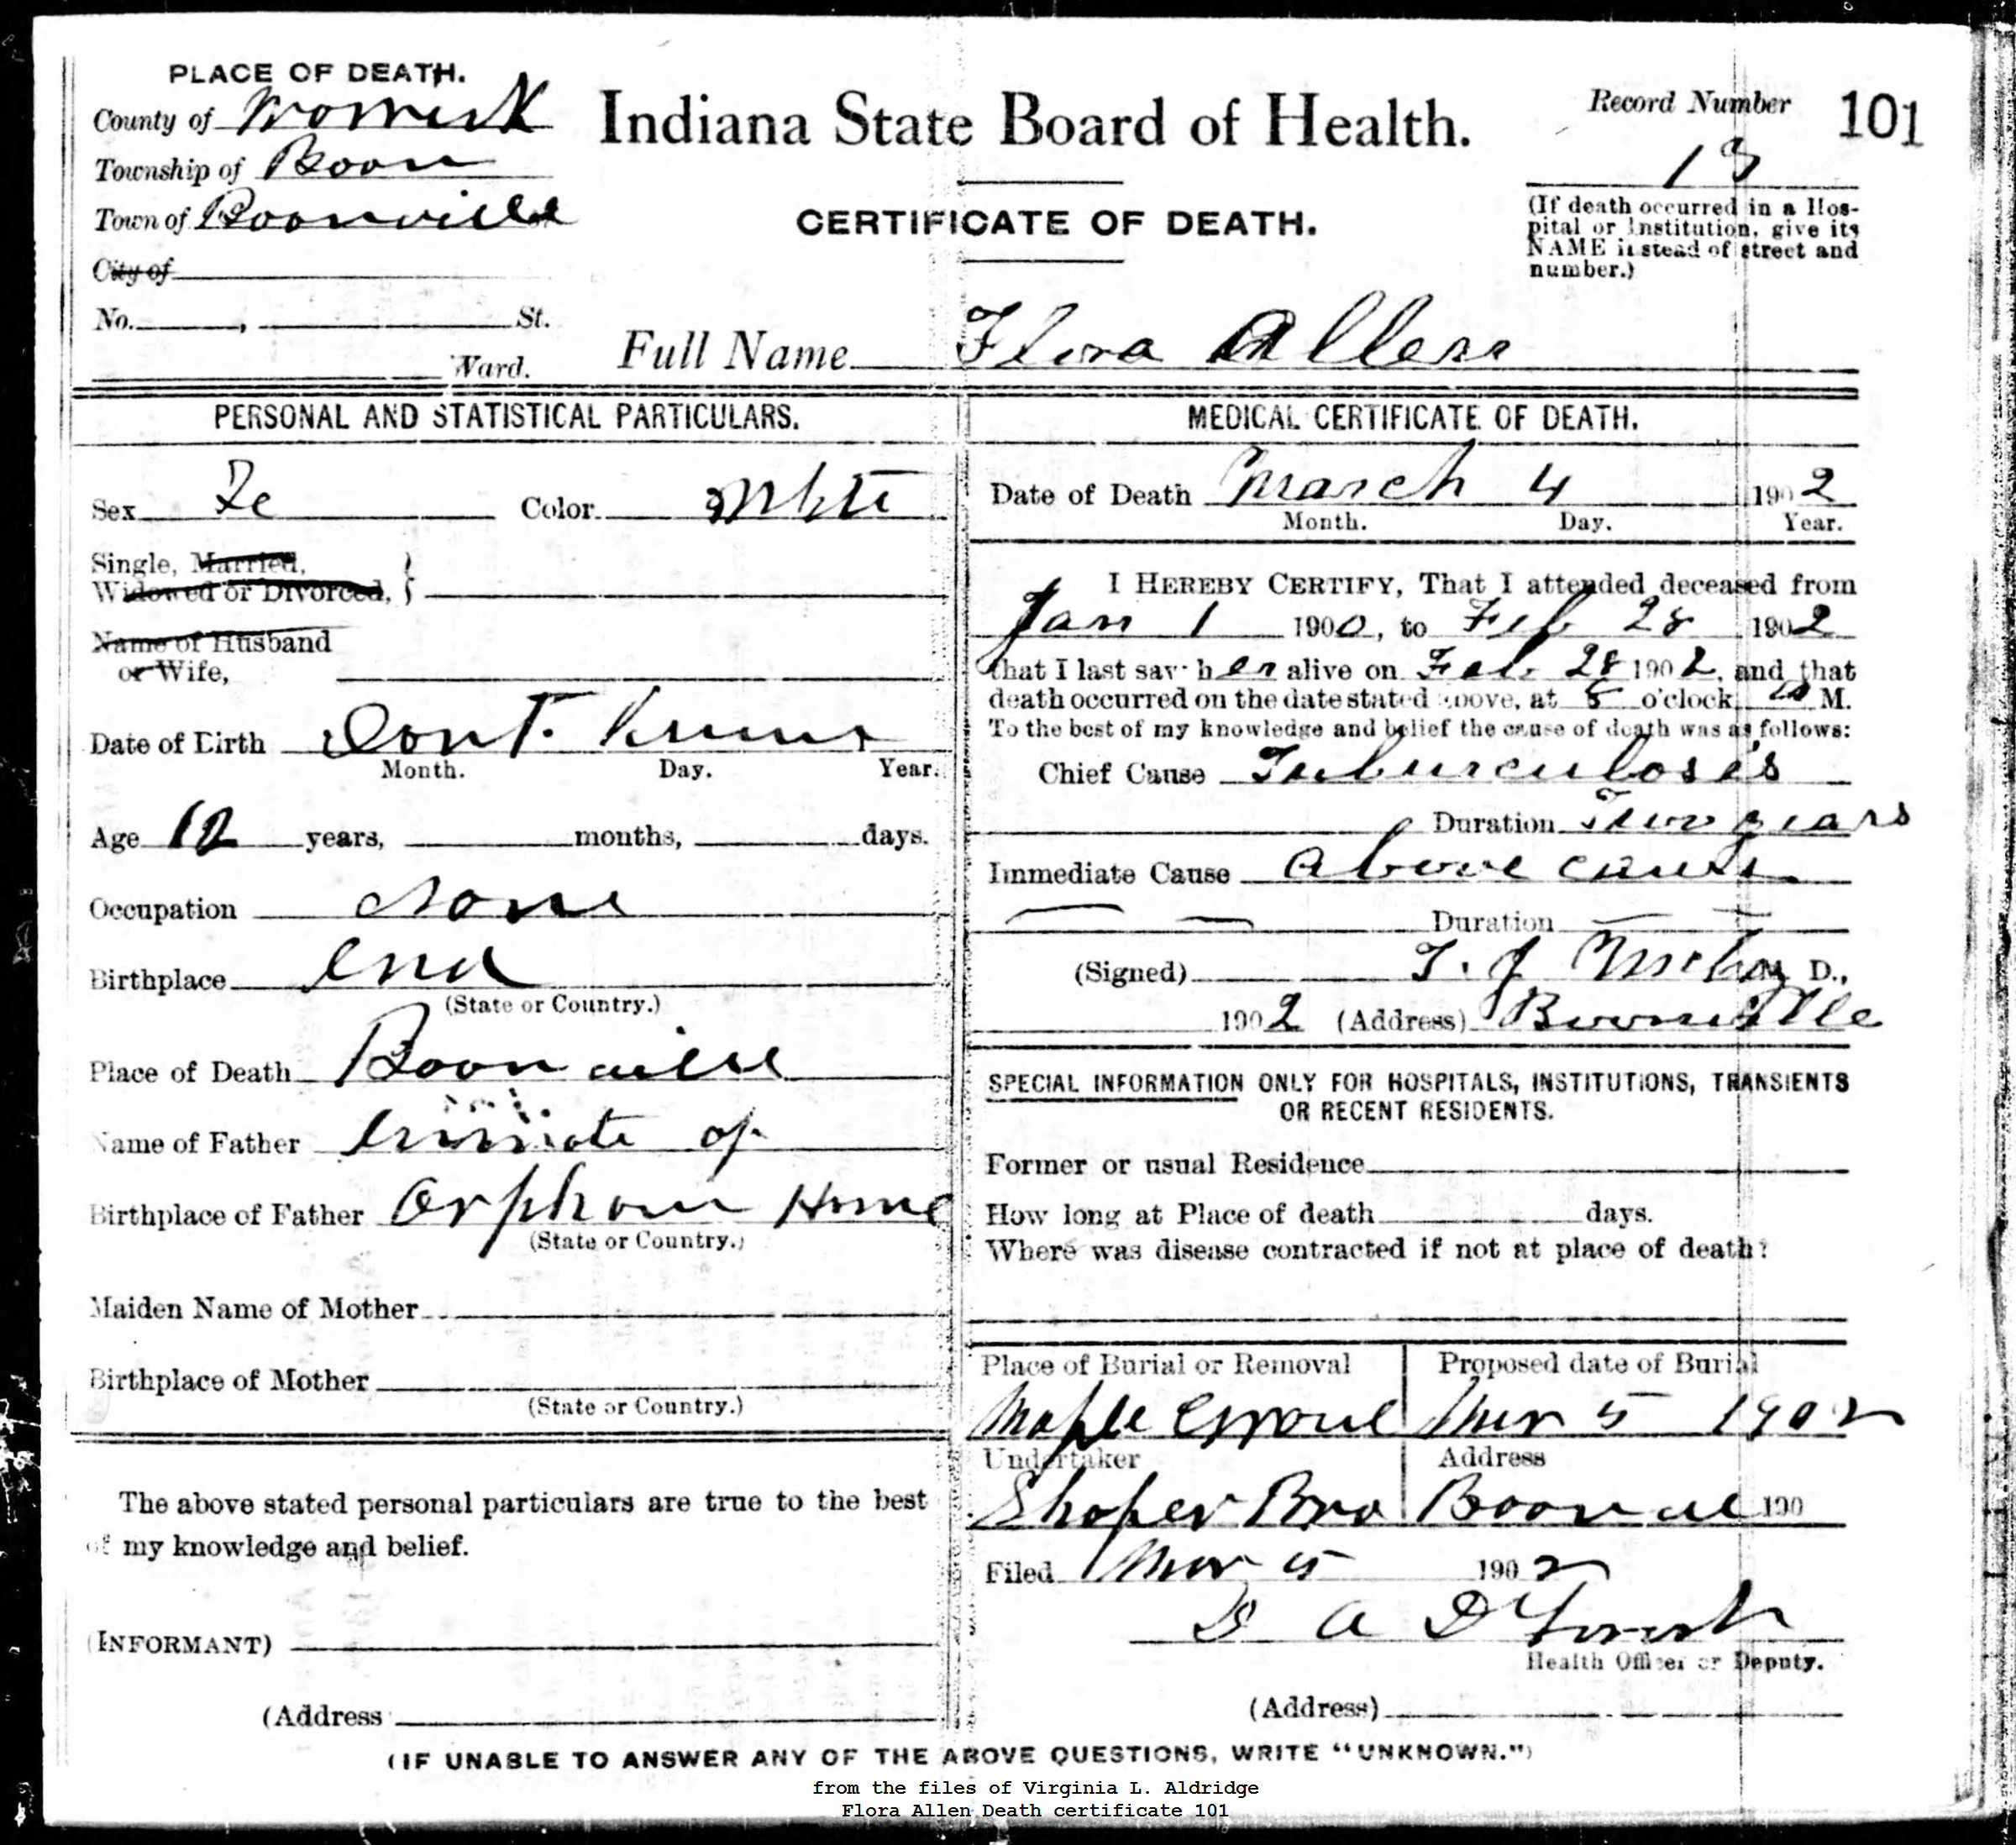 PLACE OF DEATH.
County of Warrick
Township of Boon
Town of Boonville
City of
No. , St.
Ward.
Indiana State Board of Health.
CERTIFICATE OF DEATH.
Record Number 101
13
(If death occurred in a Hos-
pital or Institution, give its
NAME instead of street and
number.)
Full Name Flora Allen
PERSONAL AND STATISTICAL PARTICULARS.
Sex Fe Color White
Single, Married,
Widowed or Divorced,
Name of Husband
or Wife,
Date of Birth Dont know
Month. Day. Year.
Age 12 years, months, days.
Occupation None
Birthplace Ind
(State or Country.)
Place of Death Boonville
Name of Father Inmate of
Birthplace of Father Orphans Home
(State or Country.)
Maiden Name of Mother
Birthplace of Mother
(State or Country.)
The above stated personal particulars are true to the best
of my knowledge and belief.
(INFORMANT)
(Address
MEDICAL CERTIFICATE OF DEATH.
Date of Death March 4 1902
Month. Day. Year.
I HEREBY CERTIFY, That I attended deceased from
Jan 1 1900, to Feb 28 1902
that I last saw her alive on Feb. 28 1902, and that
death occurred on the date stated above, at 5 o'clock M.
To the best of my knowledge and belief the cause of death was as follows:
Chief Cause Tuburculosis
Duration Two years
Immediate Cause Above cause
Duration
(Signed) T. J. M. D.,
1902 (Address) Boonville
SPECIAL INFORMATION ONLY FOR HOSPITALS, INSTITUTIONS, TRANSIENTS
OR RECENT RESIDENTS.
Former or usual Residence
How long at Place of death days.
Where was disease contracted if not at place of death?
Place of Burial or Removal Proposed date of Burial
Maple Grove Mar 5 1902
Undertaker Address
Shafer Bro Boonville 190
Filed Mar 5 1902
A
Health Officer or Deputy.
(Address)
(IF UNABLE TO ANSWER ANY OF THE ABOVE QUESTIONS, WRITE "UNKNOWN.")
from the files of Virginia L. Aldridge
Flora Allen Death certificate 101